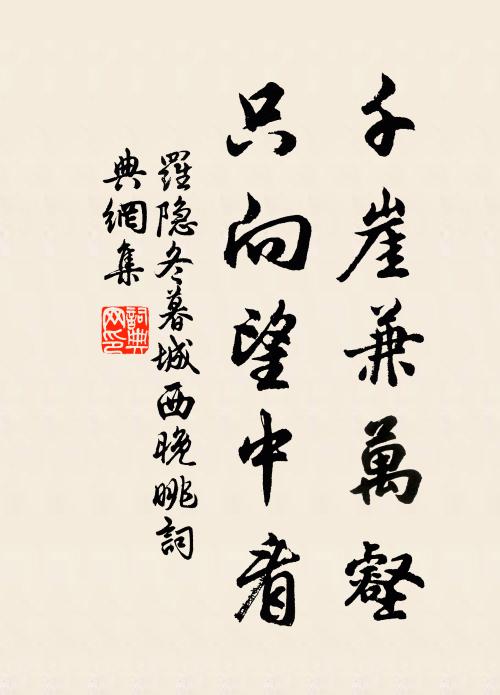 千崖兼萬壑
只向望中看
羅隐冬暮城西晚眺詞
典網集
詞典
网印